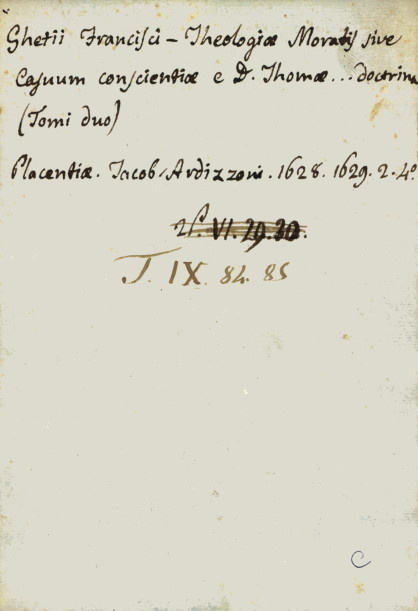 Ghetii Francisci - Theologiæ Moralis sive
Casuum conscientiæ e D. Thomæ... doctrina
(Tomi duo)
Placentiæ. Jacob. Ardizzoni. 1628. 1629. 2. 4º
VI. 29. 30.
T. IX. 84. 85
C